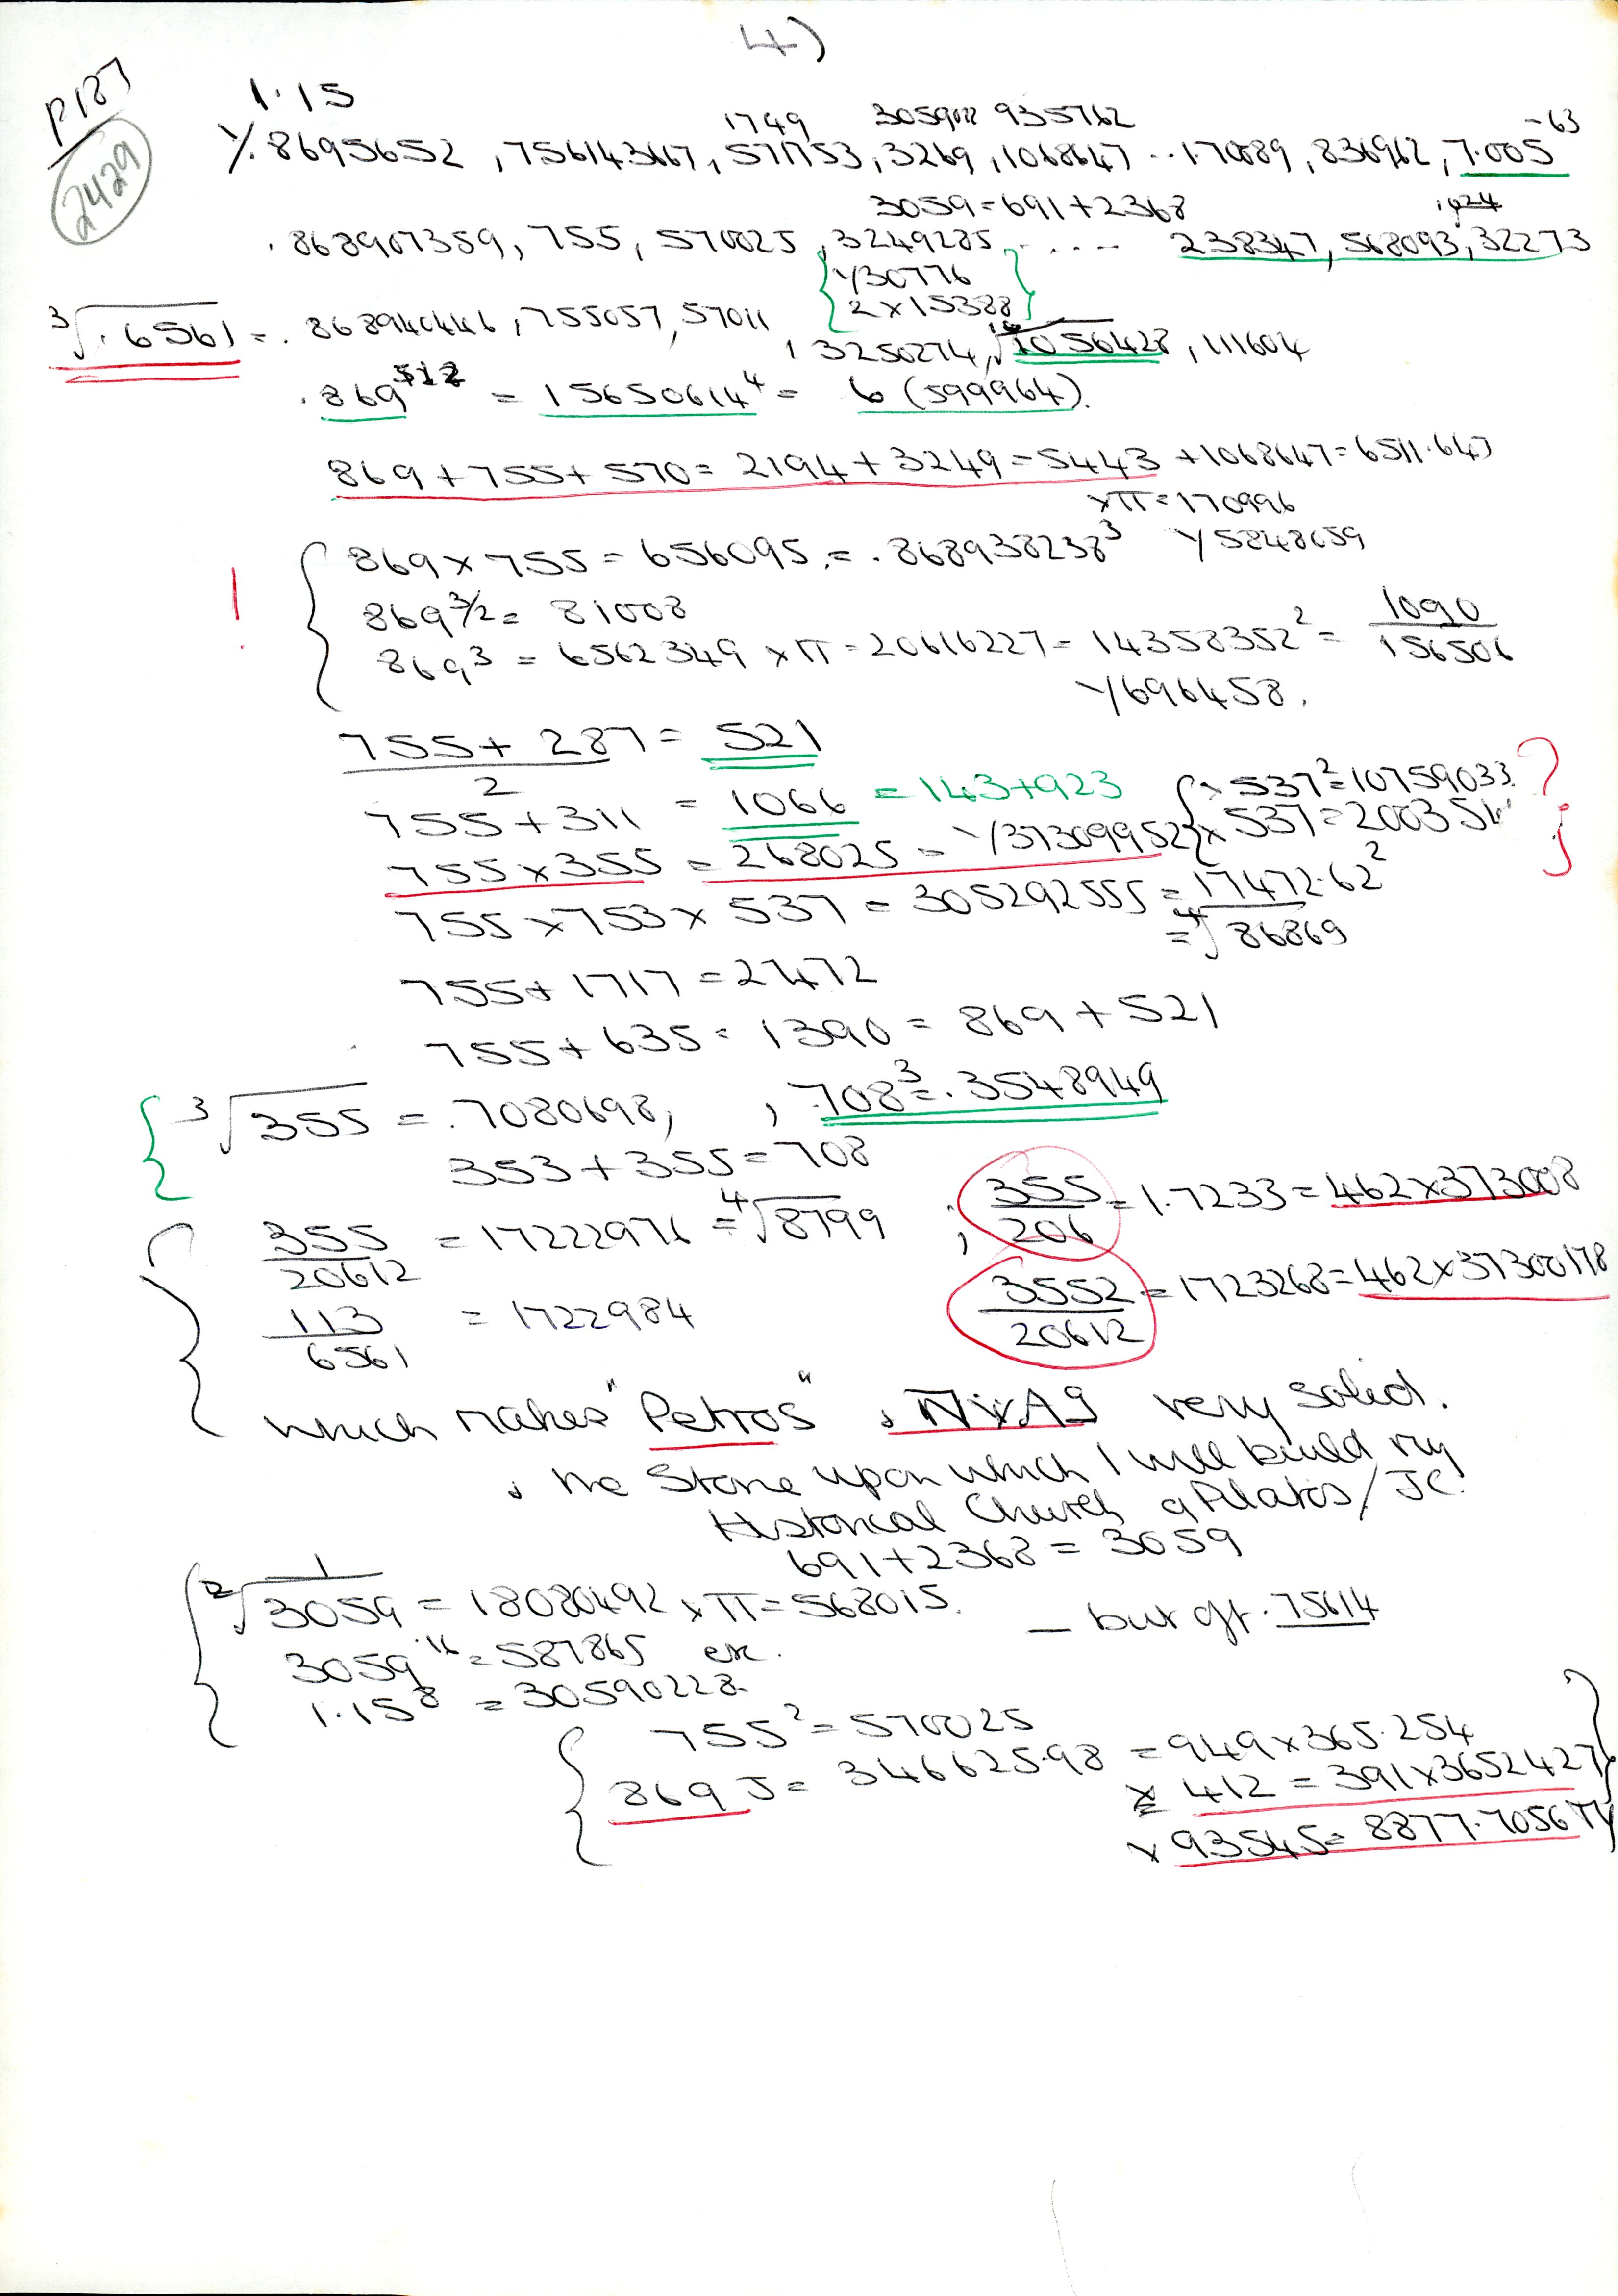 4)
P187
2429
1.15
1749 305902 935762
Y.8695652 , 756143667, 571753, 3269, 1068647 .. 170089, 836962, 7.005⁻⁶³
3059 = 691 + 2368
.868907359, 755, 570025, 3249285 . . . . 238347, 568093, 32273
Y30776
2 × 15388
³√.6561 = .868940446, 755057, 57011, 3250274, √1056428, 111604
.869⁵¹² = 15650614⁴ = 6 (599964).
869 + 755 + 570 = 2194 + 3249 = 5443 + 1068647 = 6511.647
×π = 170996
869 × 755 = 656095 = .868938238³ Y5848059
! 869³/² = 81008
869³ = 6562349 × π = 20616227 = 14358352² = 1090/156506
Y696458.
755 + 287 / 2 = 521
755 + 311 = 1066 = 143 + 923 × 537² = 10759033. ?
755 × 355 = 268025 = Y37309952 × 537 = 200351
755 × 753 × 537 = 305292555 = 17472.62²
= ⁴√86869
755 + 1717 = 2472
755 + 635 = 1390 = 869 + 521
³√355 = .7080698, , 708³ = .3548949
353 + 355 = 708
355/20612 = 17222976 = ⁴√8799 ; 355/206 = 1.7233 = 462 × 373008
113/6561 = 1722984 3552/20612 = 1723268 = 462 × 37300178
which makes "Petros" , very solid.
, the Stone upon which I will build my
Historical Church of Pilatos / JC.
691 + 2368 = 3059
²√1/3059 = 18080492 × π = 568015. — but cft .75614
3059·¹⁶ = 587865 etc.
1.15⁸ = 30590228
755² = 570025
869 J = 346625.98 = 949 × 365.254
× 412 = 391 × 3652427
× 93545 = 8877.7056